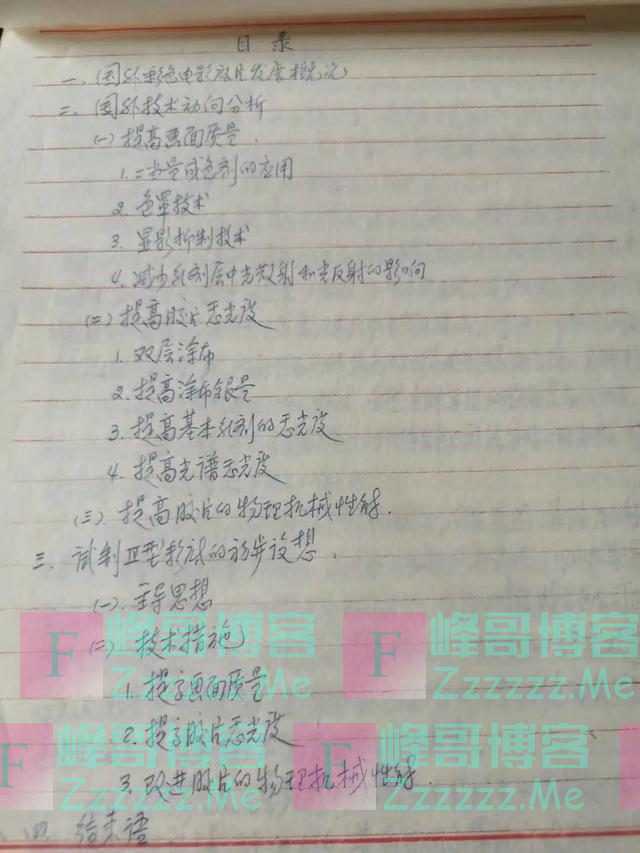 目录
一、国外彩色电影胶片发展概况
二、国外技术动向分析
(一)提高画面质量.
1.二当量成色剂的应用
2.色罩技术
3.显影抑制技术
4.减少乳剂层中光散射和光反射的影响
(二)提高胶片感光度
1.双层涂布
2.提高涂布银量
3.提高基本乳剂的感光度
4.提高光谱感光度
(三)提高胶片的物理机械性能.
三、试制II型彩底的初步设想.
(一).主导思想
(二)技术措施
1.提高画面质量
2.提高胶片感光度
3.改进胶片的物理机械性能.
四 结束语
F 峰哥博客 Zzzzzz.Me
F 峰哥博客 Zzzzzz.Me
F 峰哥博客 Zzzzzz.Me
F 峰哥博客 Zzzzzz.Me